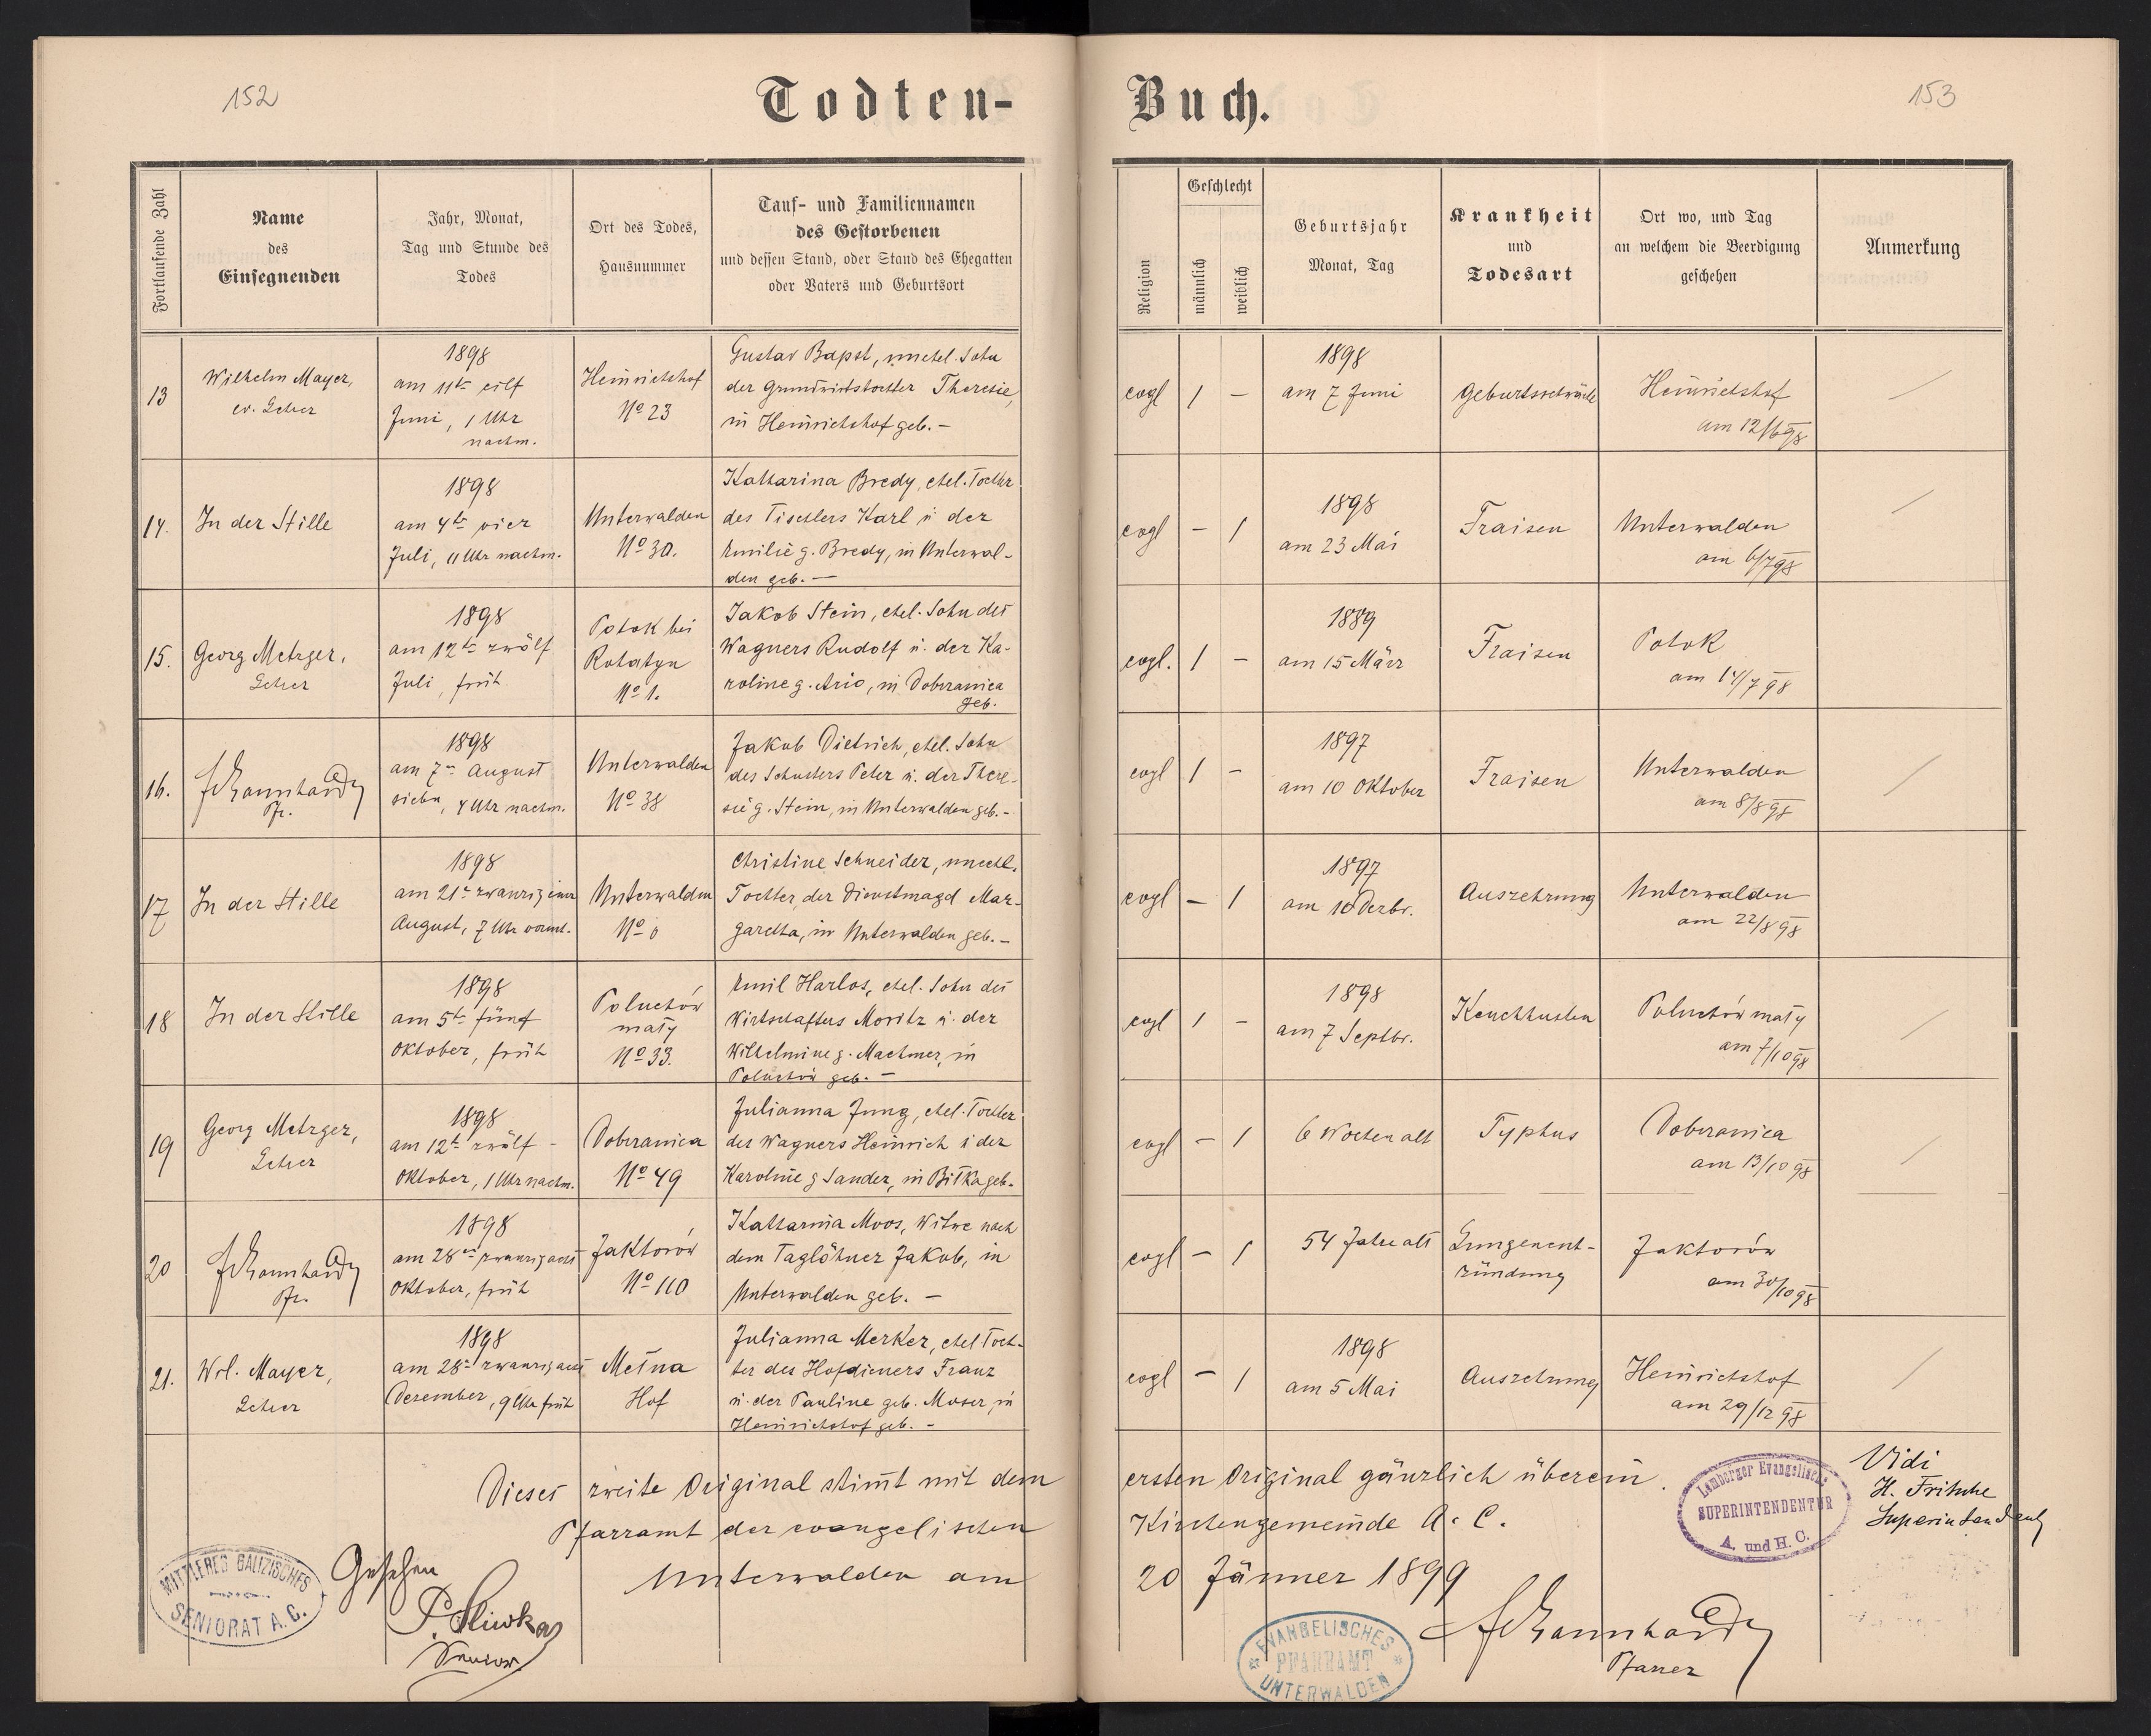 152
Todten-
Buch.
153
Fortlaufende Zahl
Name
des
Einsegnenden
Jahr, Monat,
Tag und Stunde des
Todes
Ort des Todes,
Hausnummer
Tauf- und Familiennamen
des Gestorbenen
und dessen Stand, oder Stand des Ehegatten
oder Vaters und Geburtsort
Religion
Geschlecht
männlich
weiblich
Geburtsjahr
Monat, Tag
Krankheit
und
Todesart
Ort wo, und Tag
an welchem die Beerdigung
geschehen
Anmerkung
13
Wilhelm Mayer,
ev. Lehrer
1898
am 11te eilf
Juni, 1 Uhr
nachm.
Heinrichshof
No 23
Gustav Bapst, unehel. Sohn
der Grundwirtstochter Theresie,
in Heinrichshof geb. –
evgl
1
–
1898
am 7 Juni
Geburtsschwäche
Heinrichshof
am 12/6 98
14.
In der Stille
1898
am 4te vier
Juli, 11 Uhr nachm.
Unterwalden
No 30.
Katharina Bredy, ehel. Tochter
des Tischlers Karl u. der
Emilie g. Bredy, in Unterwal-
den geb. –
evgl
–
1
1898
am 23 Mai
Fraisen
Unterwalden
am 6/7 98
15.
Georg Metzger,
Lehrer
1898
am 12te zwölf
Juli, früh
Potok bei
Rohatyn
No 1.
Jakob Stein, ehel. Sohn des
Wagners Rudolf u. der Ka-
roline g. Ario, in Dobrzanica
geb.
evgl.
1
–
1889
am 15 März
Fraisen
Potok
am 14/7 98
16.
Pfr.
1898
am 7en August
sieben, 4 Uhr nachm.
Unterwalden
No 38
Jakob Dietrich, ehel. Sohn
des Schusters Peter u. der There-
sie g. Stein, in Unterwalden geb. –
evgl
1
–
1897
am 10 Oktober
Fraisen
Unterwalden
am 8/8 98
17
In der Stille
1898
am 21te zwanzig einen
August, 7 Uhr vormt.
Unterwalden
No 0
Christine Schneider, unehel.
Tochter der Dienstmagd Mar-
garetha, in Unterwalden geb. –
evgl
–
1
1897
am 10 Dezbr.
Auszehrung
Unterwalden
am 22/8 98
18
In der Stille
1898
am 5te fünf
Oktober, früh
Poluchów
mały
No 33.
Emil Harlos, ehel. Sohn des
Wirtschafters Moritz u. der
Wilhelmine g. Machmer, in
Poluchów geb. –
evgl
1
–
1898
am 7 Septbr.
Keuchhusten
Poluchów mały
am 7/10 98
19
Georg Metzger,
Lehrer
1898
am 12te zwölf –
Oktober, 1 Uhr nachm.
Dobrzanica
No 49
Julianna Jung, ehel. Tochter
des Wagners Heinrich u der
Karoline g Sander, in Bitka geb.
evgl
–
1
6 Wochen alt
Typhus
Dobrzanica
am 13/10 98
20
Pfr.
1898
am 28en zwanzig acht
Oktober, früh
Jaktorów
No 110
Katharina Moos, Witwe nach
dem Taglöhner Jakob, in
Unterwalden geb. –
evgl
–
1
54 Jahre alt
Lungenent-
zündung
Jaktorów
am 30/10 98
21.
Wil. Mayer,
Lehrer
1898
am 28te zwanzig acht
Dezember, 9 Uhr früh
Metna
Hof
Julianna Merker, ehel. Toch-
ter des Hofdieners Franz
u. der Pauline geb. Moser, in
Heinrichshof geb. –
evgl
–
1
1898
am 5 Mai
Auszehrung
Heinrichshof
am 29/12 98
Dieses zweite Original stimmt mit dem ersten Original gänzlich überein.
Pfarramt der evangelischen Kirchengemeinde A. C.
Unterwalden am 20 Jänner 1899
Pfarrer
MITTLERES GALIZISCHES
SENIORAT A.C.
Gesehen
Senior
EVANGELISCHES
PFARRAMT
UNTERWALDEN
Lemberger Evangelische
SUPERINTENDENTUR
A. und H. C.
Vidi
H. Fritsche
Superintendent